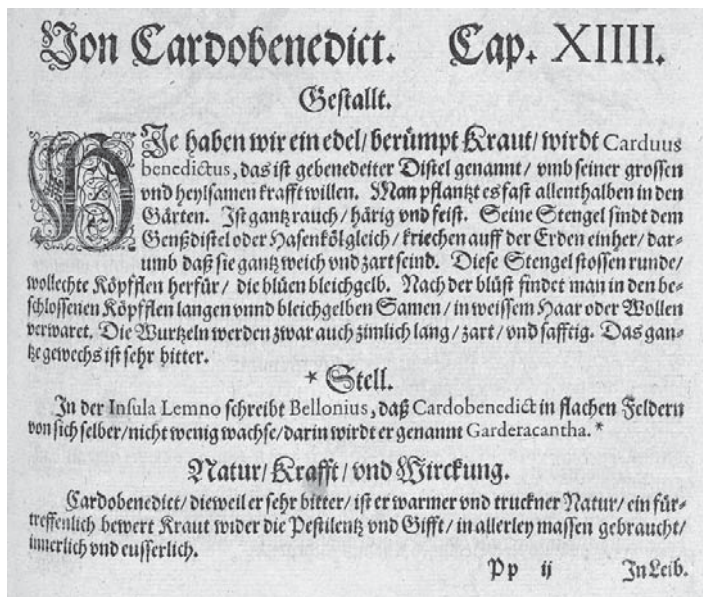 Von Cardobenedict. Cap. XIIII.
Gestallt.
HIe haben wir ein edel/ berümpt Kraut/ wirdt Carduus
benedictus, das ist gebenedeiter Distel genannt/ vmb seiner grossen
vnd heylsamen krafft willen. Man pflantzt es fast allenthalben in den
Gärten. Ist gantz rauch/ härig vnd feist. Seine Stengel sindt dem
Genßdistel oder Hasenkölgleich/ kriechen auff der Erden einher/ dar-
umb daß sie gantz weich vnd zart seind. Diese Stengel stossen runde/
wollechte Köpfflen herfür/ die blüen bleichgelb. Nach der blüst findet man in den be-
schlossenen Köpfflen langen vnnd bleichgelben Samen/ in weissem Haar oder Wollen
verwaret. Die Wurtzeln werden zwar auch zimlich lang/ zart/ vnd safftig. Das gan-
tze gewechs ist sehr bitter.
* Stell.
In der Insula Lemno schreibt Bellonius, daß Cardobenedict in flachen Feldern
von sich selber/ nicht wenig wachse/ darin wirdt er genannt Garderacantha. *
Natur/ Krafft/ vnd Wirckung.
Cardobenedict/ dieweil er sehr bitter/ ist er warmer vnd truckner Natur/ ein für-
treffenlich bewert Kraut wider die Pestilentz vnd Gifft/ in allerley massen gebraucht/
innerlich vnd eusserlich.
Pp ij In Leib.